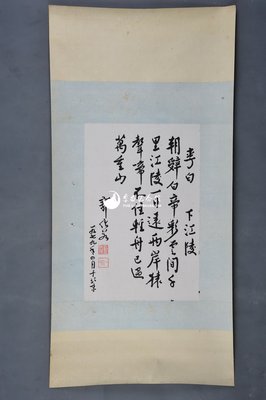 李白 下江陵
朝辞白帝彩云间千
里江陵一日还两岸猿
声啼不住轻舟已过
萬重山
一九七九年四月十六日